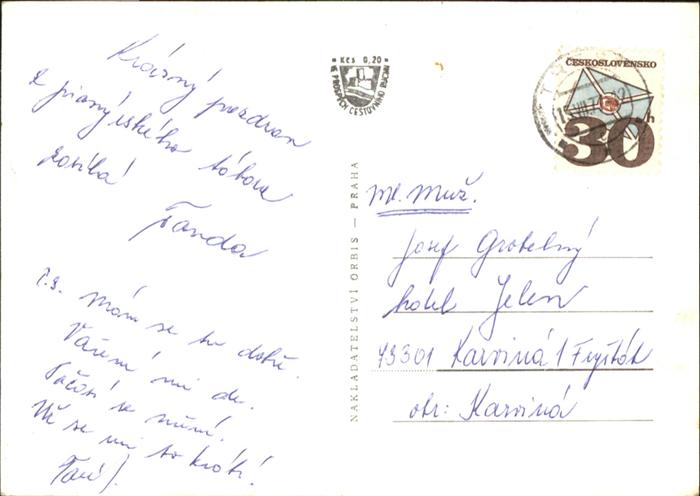 Krásný pozdrav
z pionýrského tábora
zasílá
Fanda
P.S. Mám se tu dobře.
Vaření mi de.
Počasí se mění.
Už se mi to krátí!
Kčs 0,20
VE PROSPĚCH CESTOVNÍHO RUCHU
ČESKOSLOVENSKO
30 h
NAKLADATELSTVÍ ORBIS — PRAHA
Ml. Muž.
Josef Grobelný
hotel Jelen
73301 Karviná 1 Fryšták
okr: Karviná